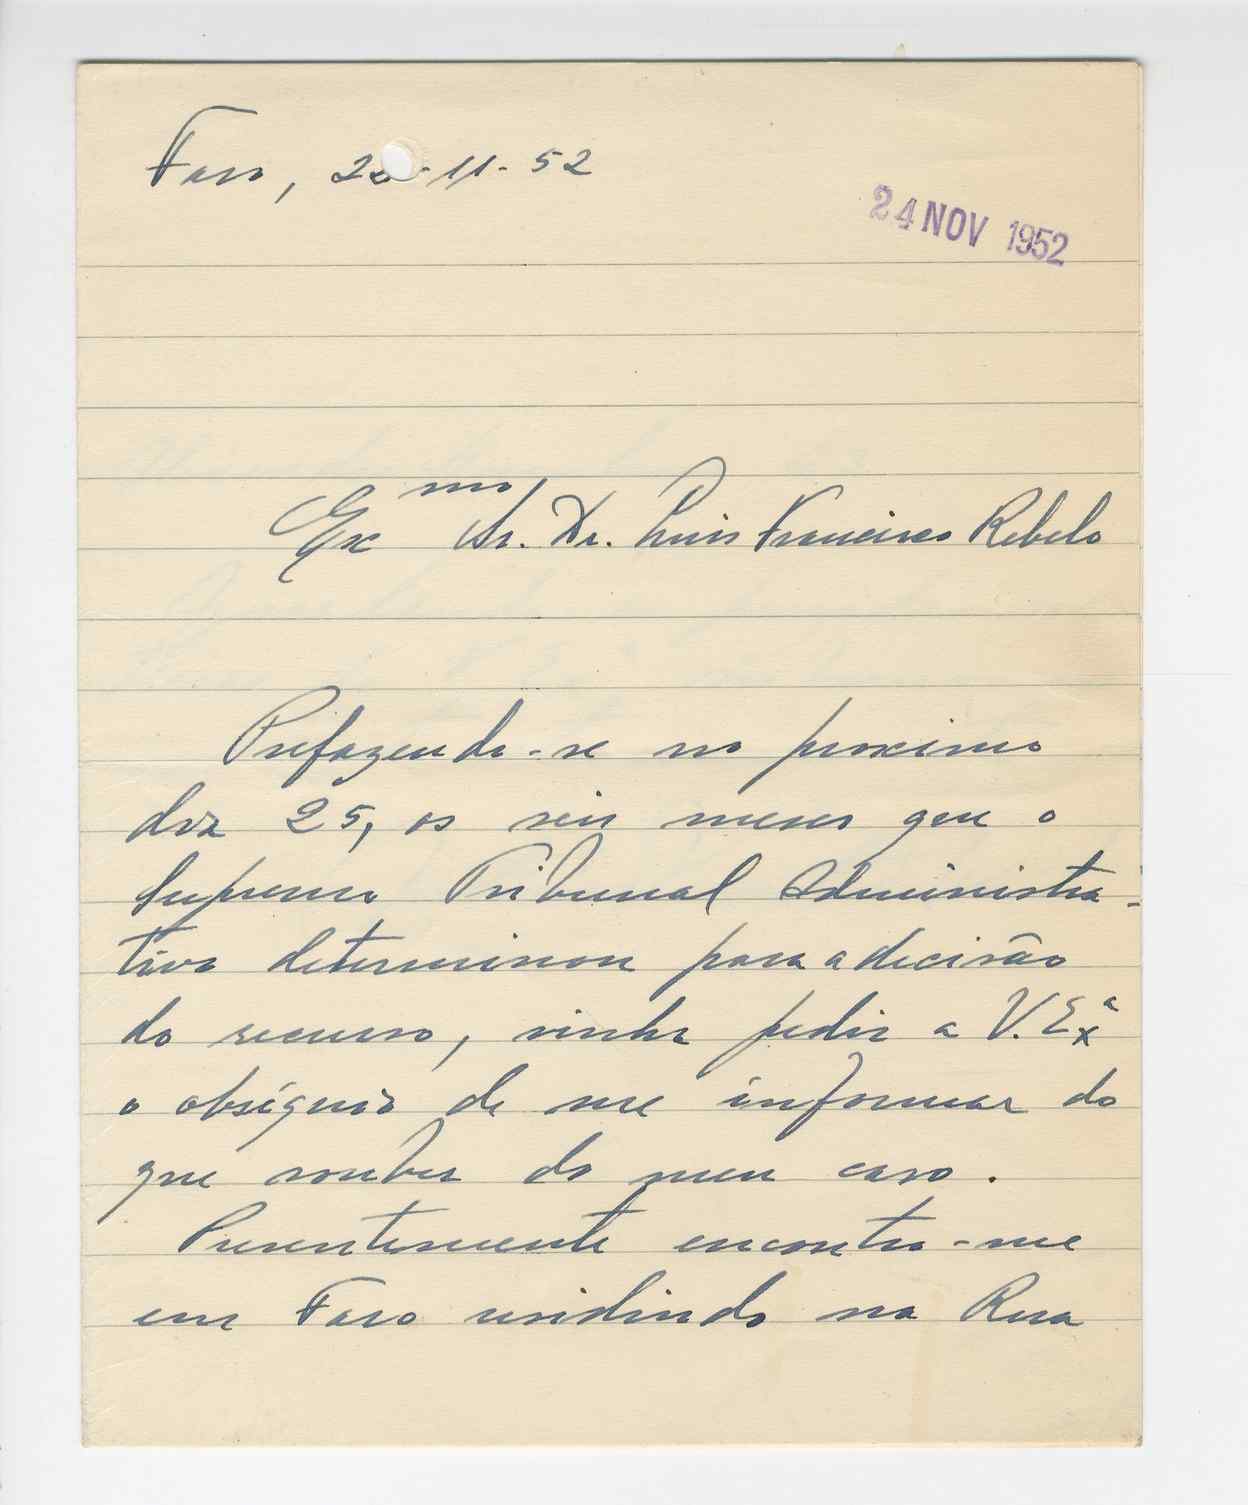 Faro, 22-11-52
24 NOV 1952
Exmo Sr. Dr. Luis Francisco Rebelo
Prefazendo-se no proximo
dia 25, os seis meses que o
Supremo Tribunal Administra-
tivo determinou para a decisão
do recurso, vinha pedir a V. Exª
o obséquio de me informar do
que souber do meu caso.
Presentemente encontro-me
em Faro residindo na Rua